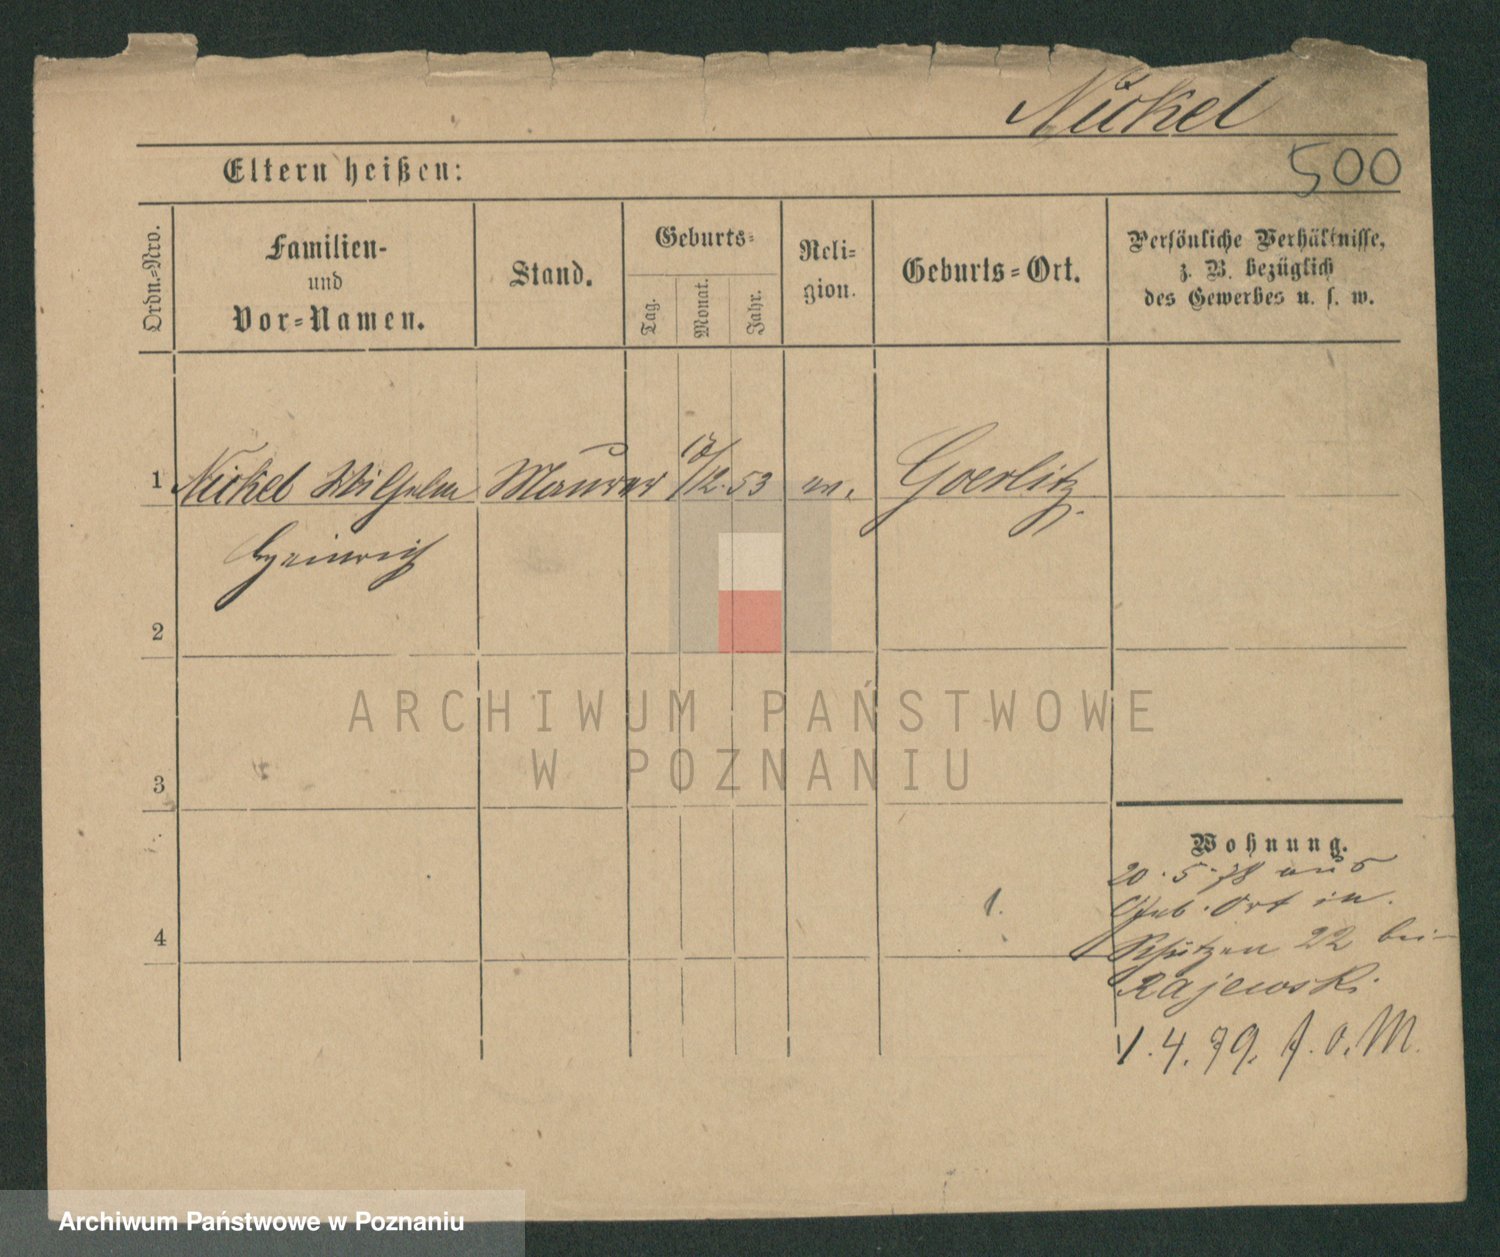 Nickel
500
Eltern heißen:
Ordn.=Nro.
Familien-
und
Vor=Namen.
Stand.
Geburts=
Tag.
Monat.
Jahr.
Reli-
gion.
Geburts=Ort.
Persönliche Verhältnisse,
z. B. bezüglich
des Gewerbes u. s. w.
1 Nickel Wilhelm Maurer /12. 53 ev. Goerlitz.
Heinrich
2
3
4
Wohnung.
20.5.78 aus
Geb. Ort in.
Schützen 22 bei
Rajewski.
1.
1.4.79. f.o.M.
ARCHIWUM PAŃSTWOWE
W POZNANIU
Archiwum Państwowe w Poznaniu